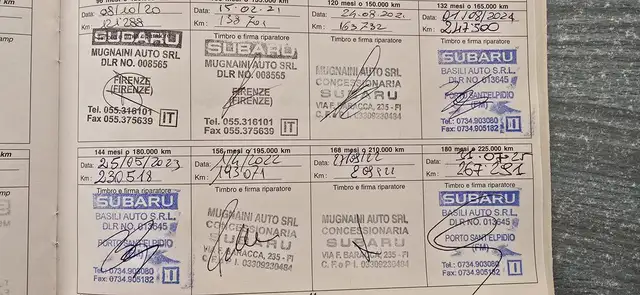 96 mesi o 120.000 km
Data: 08/10/20
Km: 121288
Timbro e firma riparatore
SUBARU
MUGNAINI AUTO SRL
DLR NO. 008565
FIRENZE
(FIRENZE)
Tel. 055.316101
Fax 055.375639
IT
Km: 138701
Timbro e firma riparatore
SUBARU
MUGNAINI AUTO SRL
DLR NO. 008565
FIRENZE
(FIRENZE)
Tel. 055.316101
Fax 055.375639
IT
120 mesi o 150.000 km
Data: 24.08.2021
Km: 153732
Timbro e firma riparatore
MUGNAINI AUTO SRL
CONCESSIONARIA
SUBARU
VIA F. BARACCA, 235 - FI
C. F. e P. I. 03309230484
132 mesi o 165.000 km
Data: 01/08/2024
Km: 247500
Timbro e firma riparatore
SUBARU
BASILI AUTO S.R.L.
DLR NO. 013645
PORTO SANT'ELPIDIO
(FM)
Tel.: 0734.903080
Fax 0734.905182
IT
144 mesi o 180.000 km
Data: 25/05/2023
Km: 230518
Timbro e firma riparatore
SUBARU
BASILI AUTO S.R.L.
DLR NO. 013645
PORTO SANT'ELPIDIO
(FM)
Tel.: 0734.903080
Fax 0734.905182
IT
156 mesi o 195.000 km
Data: 1/4/2022
Km: 193071
Timbro e firma riparatore
MUGNAINI AUTO SRL
CONCESSIONARIA
SUBARU
VIA F. BARACCA, 235 - FI
C. F. e P. I. 03309230484
168 mesi o 210.000 km
Data:
Km:
Timbro e firma riparatore
MUGNAINI AUTO SRL
CONCESSIONARIA
SUBARU
VIA F. BARACCA, 235 - FI
C. F. e P. I. 03309230484
180 mesi o 225.000 km
Data: 01.07.25
Km: 267281
Timbro e firma riparatore
SUBARU
BASILI AUTO S.R.L.
DLR NO. 013645
PORTO SANT'ELPIDIO
(FM)
Tel.: 0734.903080
Fax 0734.905182
IT